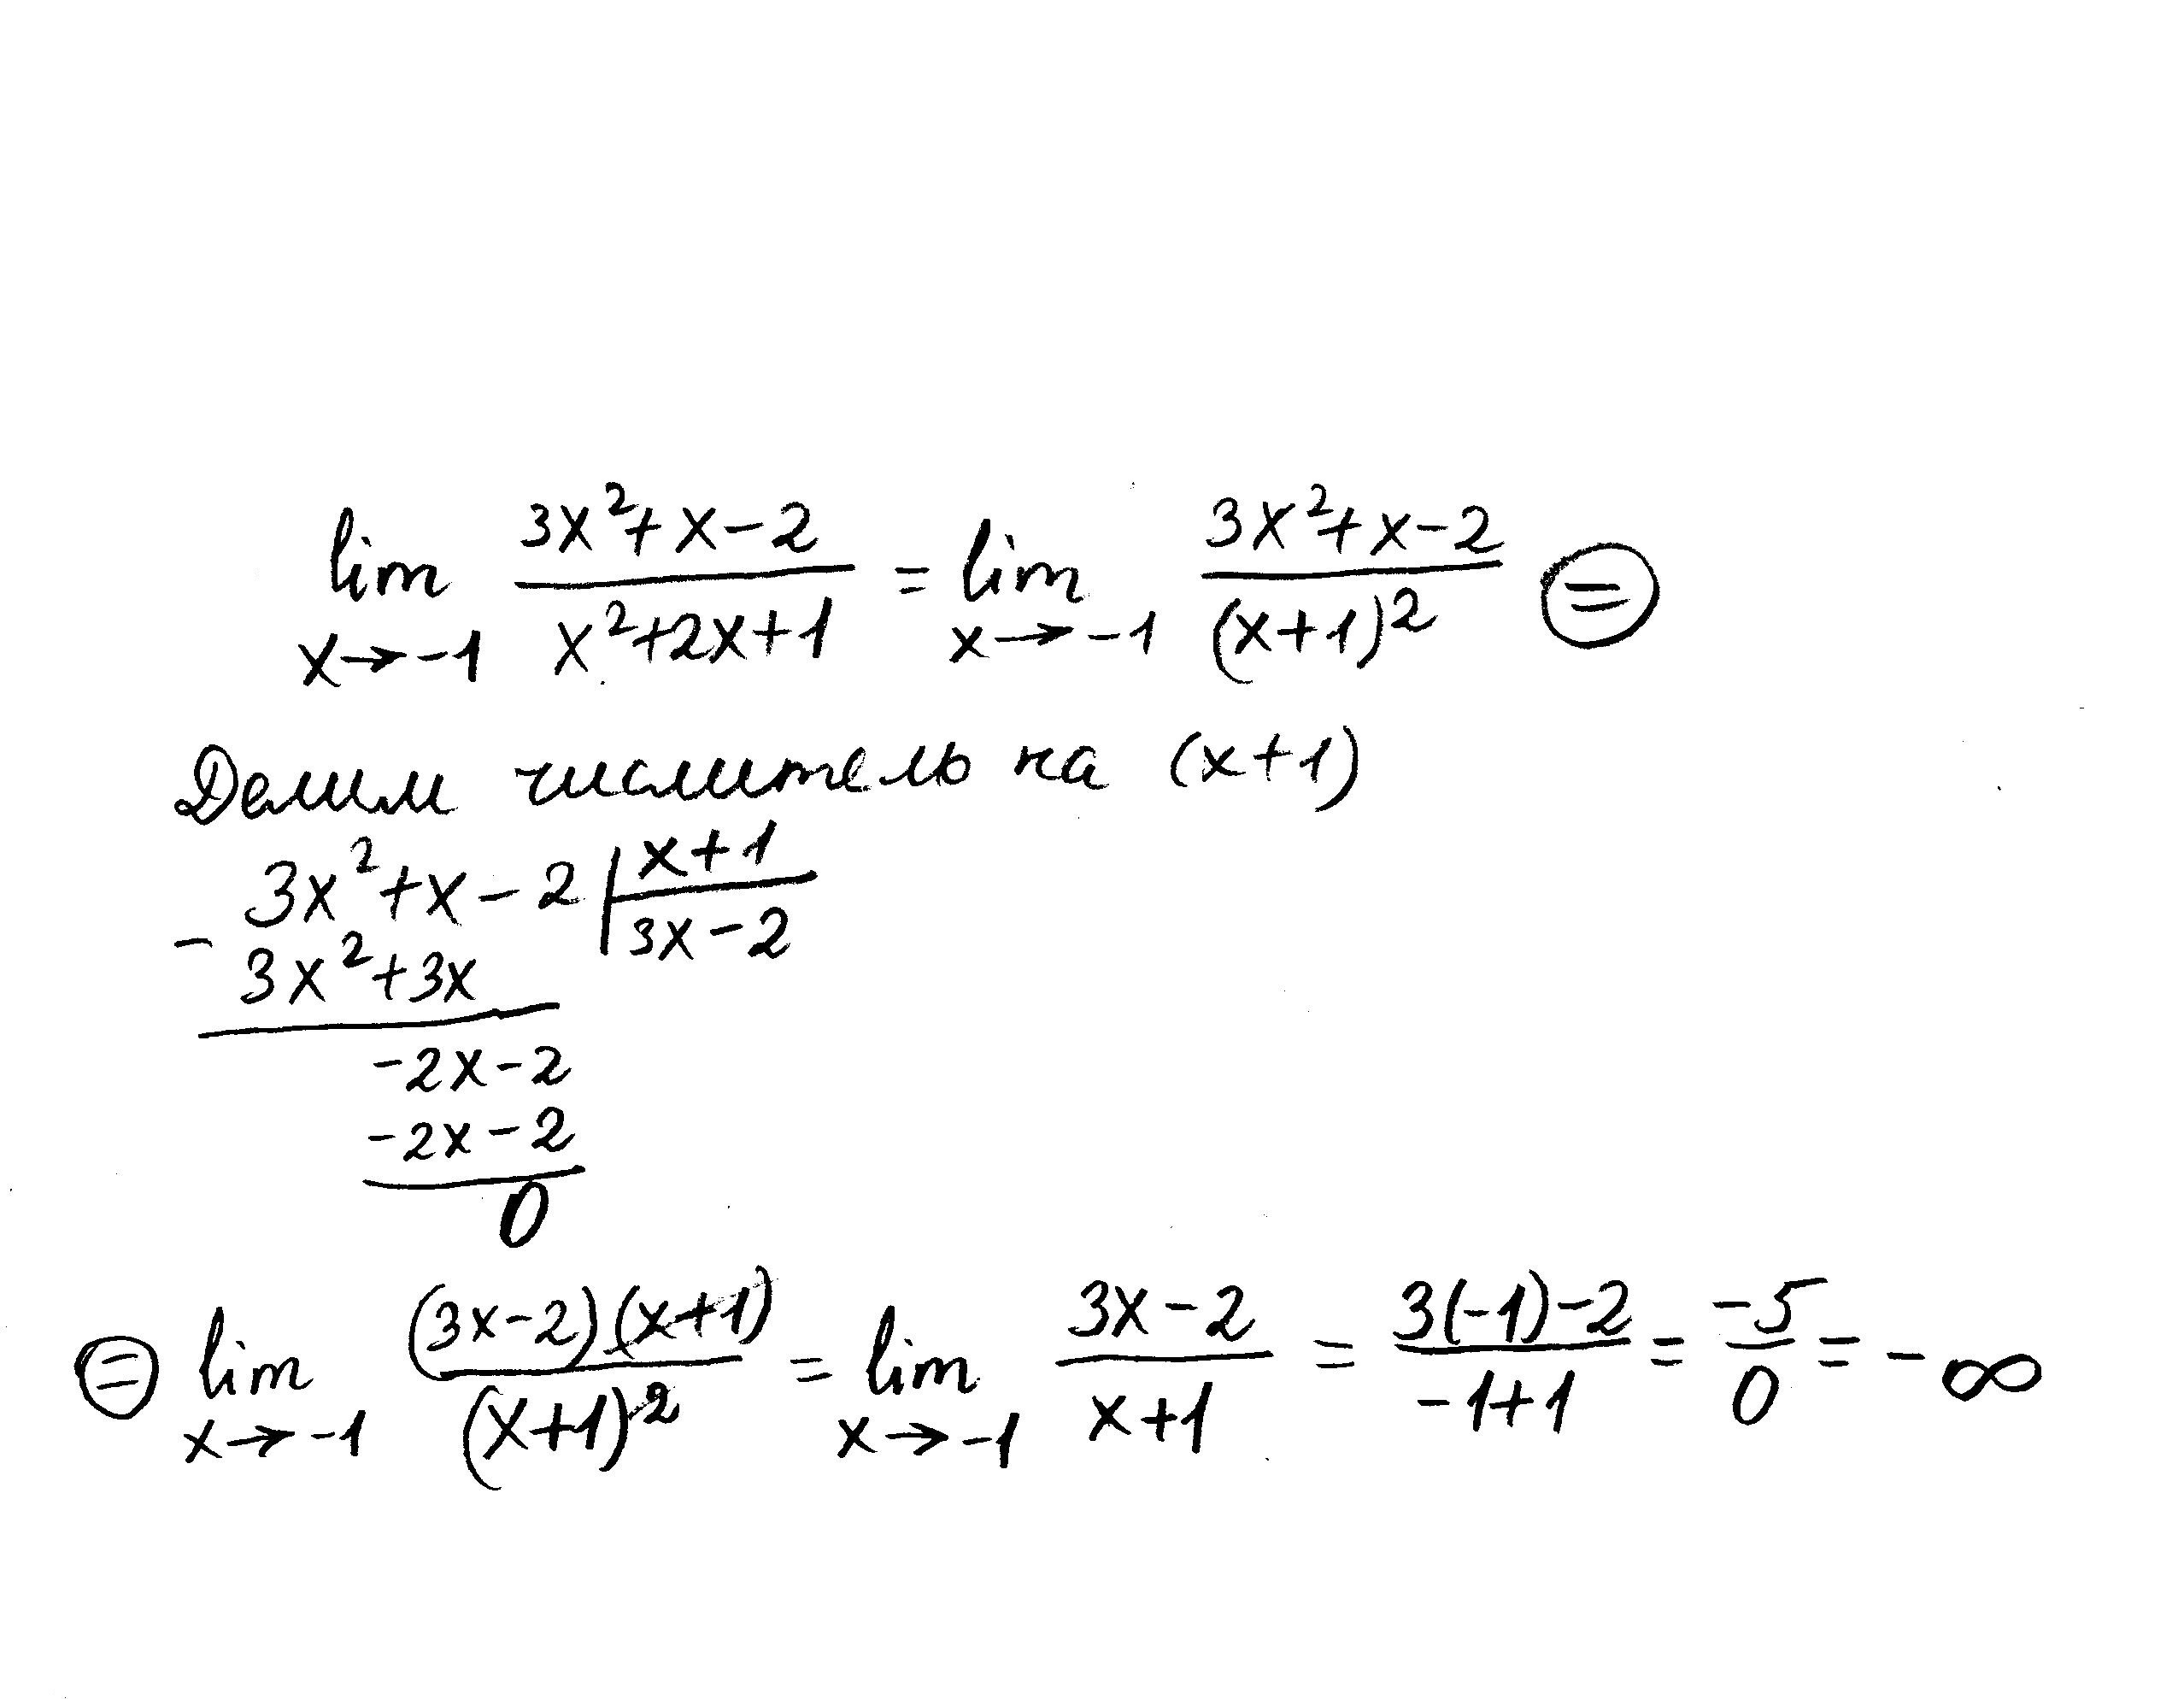 lim x→-1 (3x²+x-2)/(x²+2x+1) = lim x→-1 (3x²+x-2)/(x+1)² ⊜
Делим числитель на (x+1)
3x²+x-2 | x+1
- 3x²+3x | 3x-2
-2x-2
-2x-2
0
⊜ lim x→-1 (3x-2)(x+1)/(x+1)² = lim x→-1 (3x-2)/(x+1) = (3(-1)-2)/(-1+1) = -5/0 = -∞